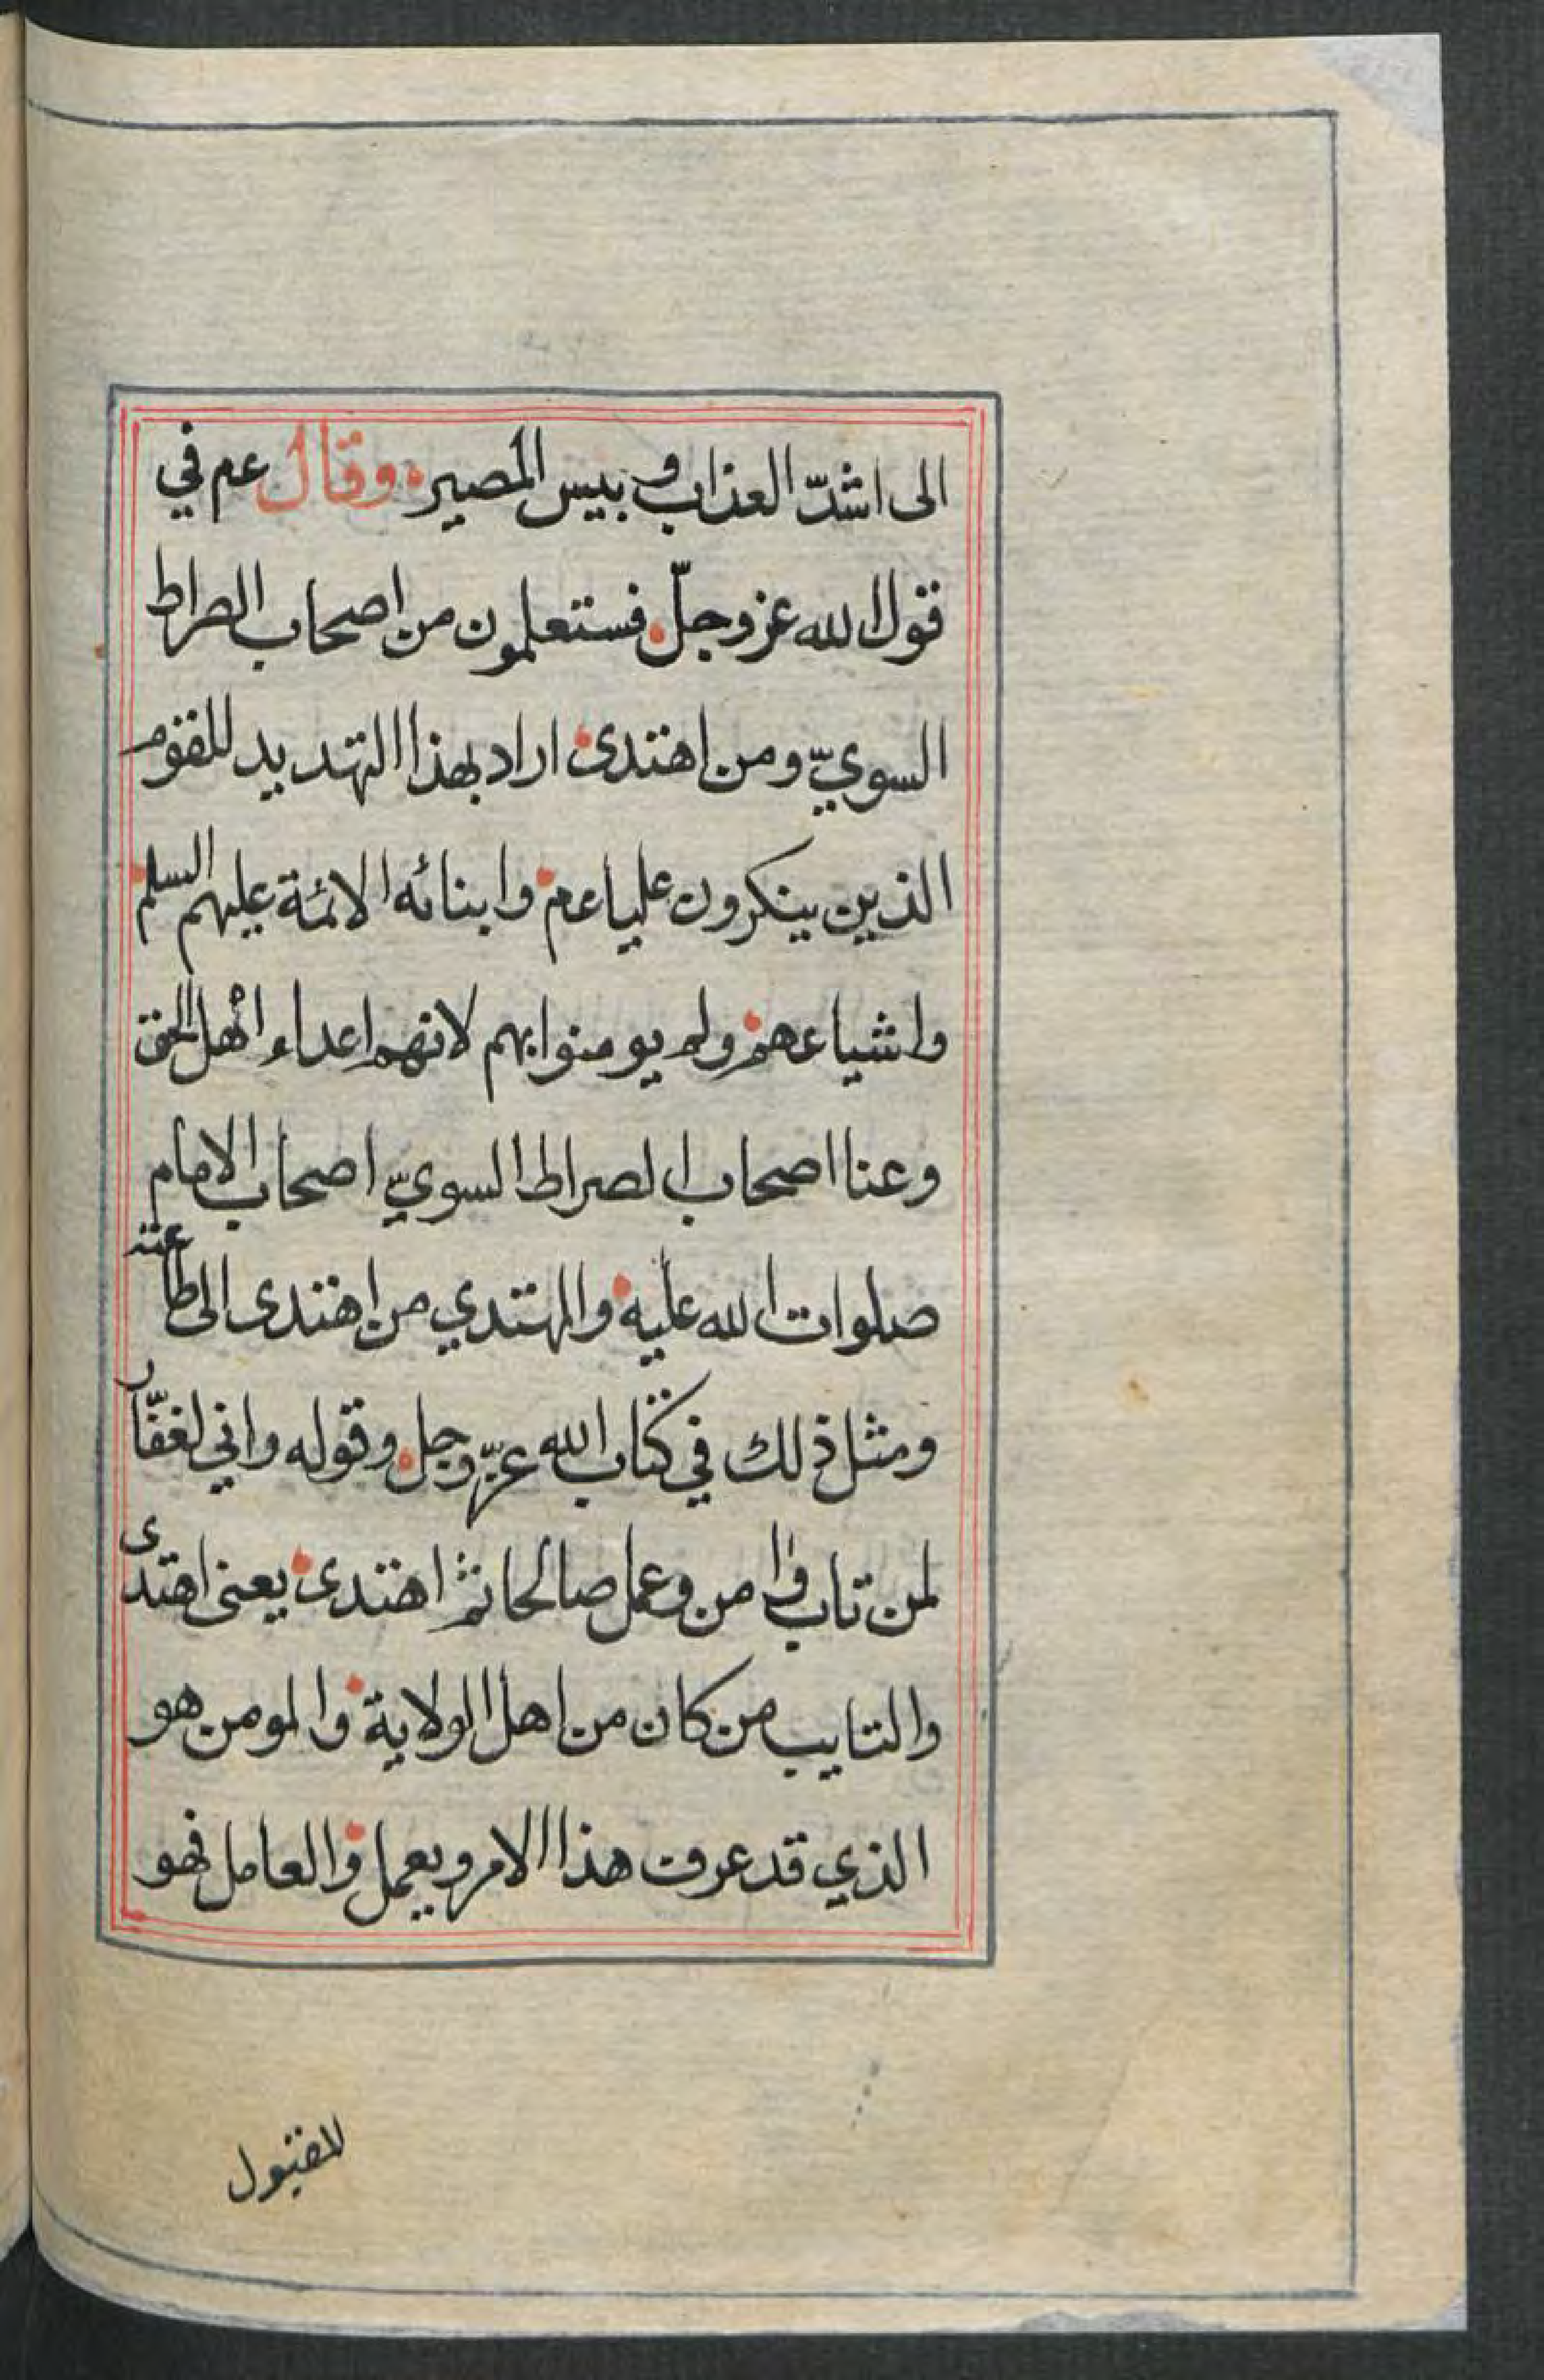 الى اشدّ العذاب وبيس المصير وقال عم في
قول الله عز وجلّ فستعلمون من اصحاب الصراط
السويّ ومن اهتدى اراد بهذا التهديد للقوم
الذين ينكرون عليا عم وابنائه الائمة عليهم السلم
واشياعهم ولم يومنوا بهم لانهم اعداء اهل الحق
وعنا اصحاب الصراط السويّ اصحاب الامام
صلوات الله عليه والمهتدي من اهتدى الى طاعته
ومثل ذلك في كتاب الله عزّ وجل وقوله واني لغفّار
لمن تاب وامن وعمل صالحا ثم اهتدى يعنى اهتدى
والتايب من كان من اهل الولاية والمومن هو
الذي قد عرف هذا الامر ويعمل والعامل فهو
المقبول